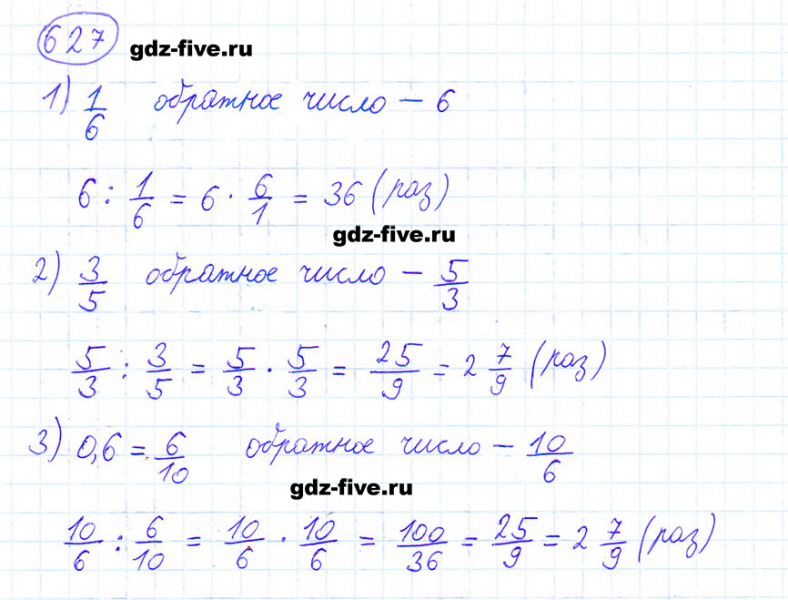 627 gdz-five.ru
1) 1/6 обратное число — 6
6 : 1/6 = 6 · 6/1 = 36 (раз)
gdz-five.ru
2) 3/5 обратное число — 5/3
5/3 : 3/5 = 5/3 · 5/3 = 25/9 = 2 7/9 (раз)
3) 0,6 = 6/10 обратное число — 10/6
gdz-five.ru
10/6 : 6/10 = 10/6 · 10/6 = 100/36 = 25/9 = 2 7/9 (раз)